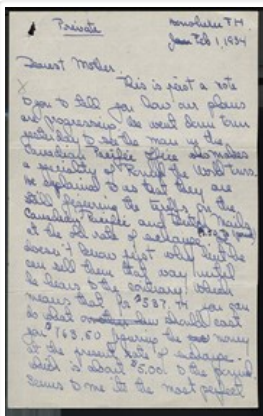 Private
Honolulu T.H.
Feb 1, 1934
Dearest Mother.
This is just a note
to you to tell you how our plans
are progressing. We went down town
yesterday to see the man in the
Canadian Pacific office who makes
a specialty of Round the World tours.
He explained to us that they are
still figuring the tariffs on the
Canadian Pacific and United Mails
at the old rate of exchange
doesn't know just why but he
can sell them that way until
he hears to the contrary. Which
means that for $537.44 you can
do what should cost
you $763.50 figuring the money
at the present rate of exchange -
which is about $5.00 to the pound.
Seems to me it's the most perfect